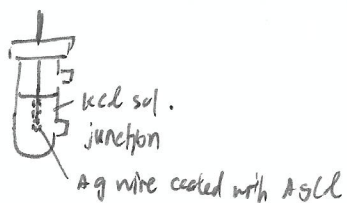 KCl sol.
junction
Ag wire coated with AgCl